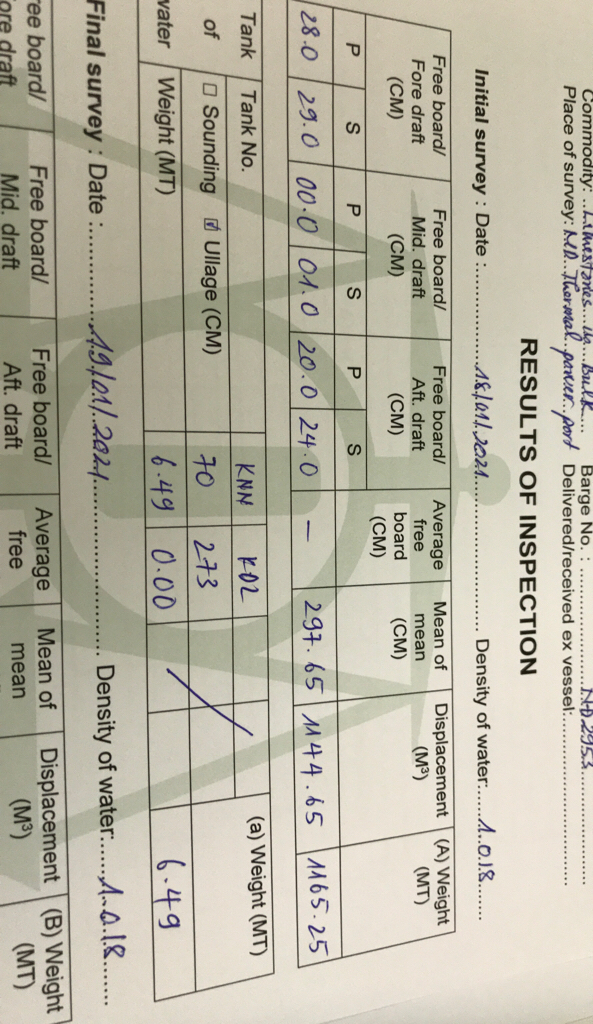 Commodity: ...Limestones in bulk.... Barge No. : ..............ND 2953..............
Place of survey: MD. Thermal power port Delivered/received ex vessel:..............
RESULTS OF INSPECTION
Initial survey : Date :..............18/01/2021.............. Density of water:.....1.018......
Free board/ Fore draft (CM) Free board/ Mid. draft (CM) Free board/ Aft. draft (CM) Average free board (CM) Mean of mean (CM) Displacement (M³) (A) Weight (MT)
P S P S P S
28.0 29.0 00.0 01.0 20.0 24.0 – 297.65 1144.65 1165.25
Tank Tank No. KNN K02 (a) Weight (MT)
of □ Sounding ☑ Ullage (CM) 70 273
water Weight (MT) 6.49 0.00 6.49
Final survey : Date :..............19/01/2021.............. Density of water:.....1.018......
Free board/ Free board/ Average Mean of Displacement (B) Weight
Mid. draft Aft. draft free mean (M³) (MT)